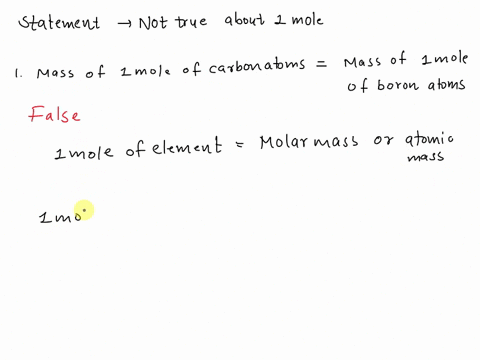 Statement → Not true about 1 mole
1. Mass of 1 mole of carbon atoms = Mass of 1 mole
of boron atoms
False
1 mole of element = Molar mass or atomic
mass
1 mo